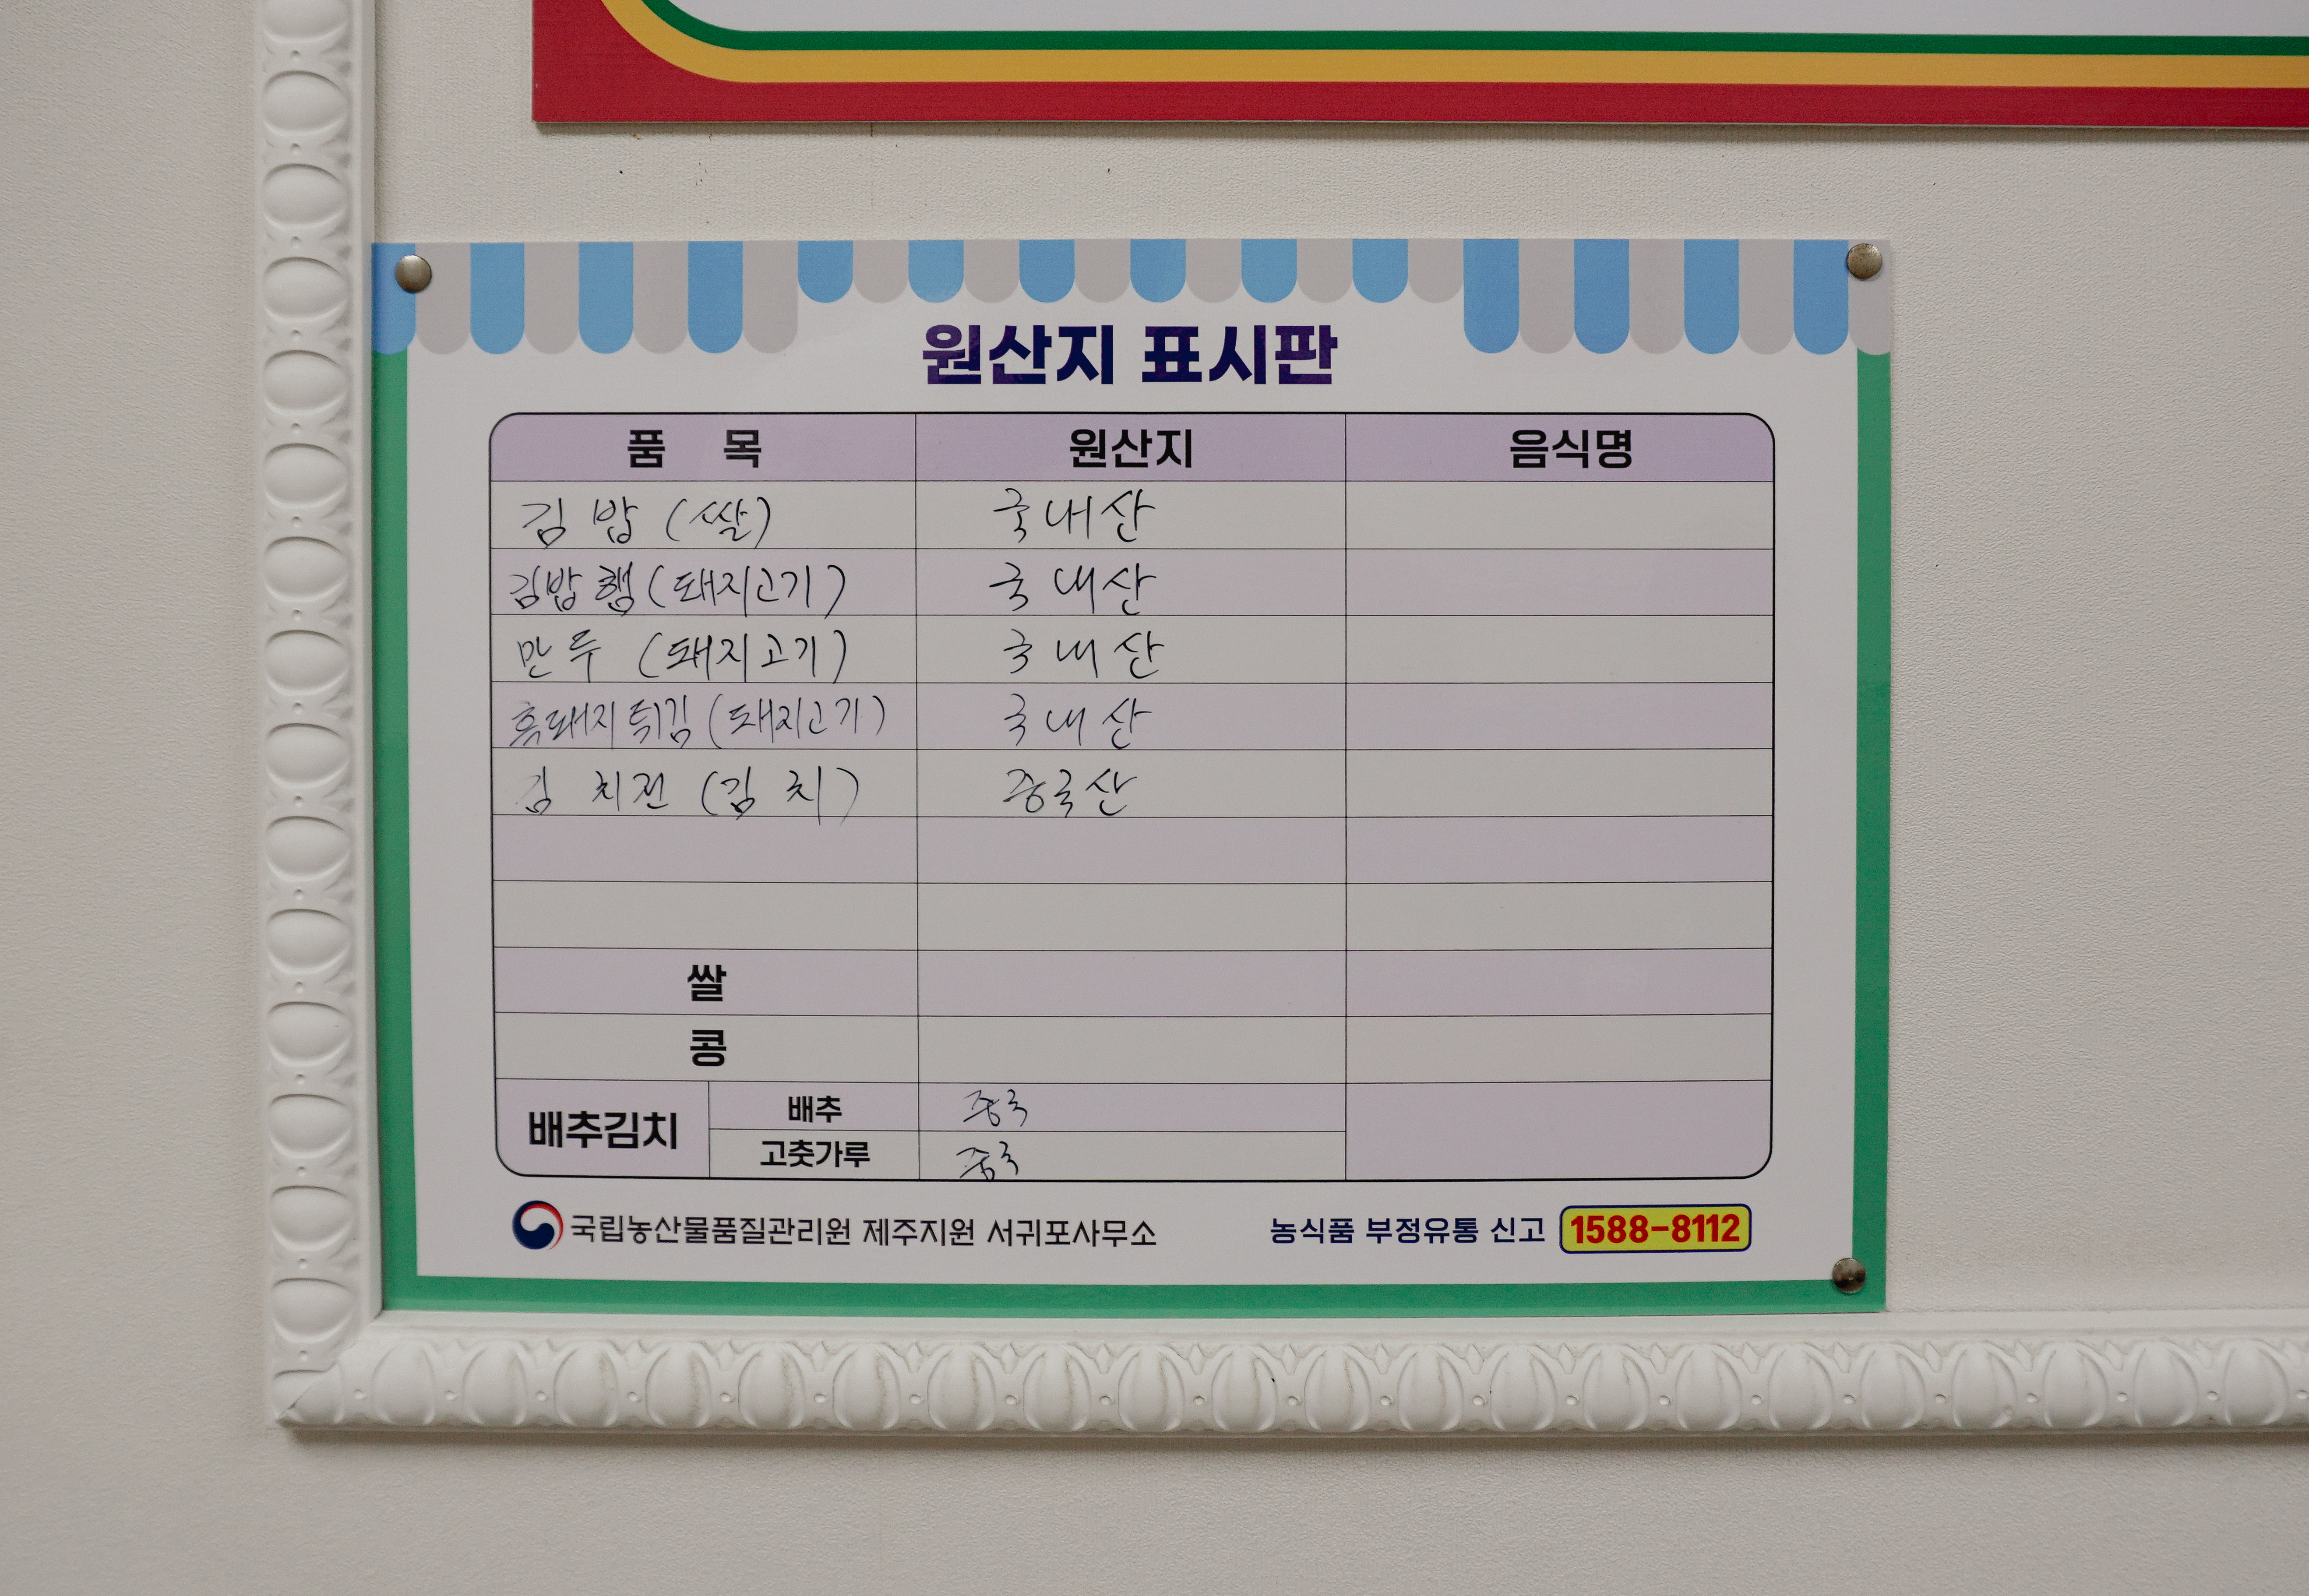 원산지 표시판
품 목 원산지 음식명
김밥 (쌀) 국내산
김밥햄 (돼지고기) 국내산
만두 (돼지고기) 국내산
흑돼지튀김 (돼지고기) 국내산
김치전 (김치) 중국산
쌀
콩
배추김치 배추 중국
고춧가루 중국
국립농산물품질관리원 제주지원 서귀포사무소 농식품 부정유통 신고 1588-8112